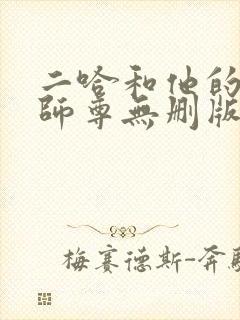 二哈和他的
師尊無刪版
梅賽德斯-奔馳